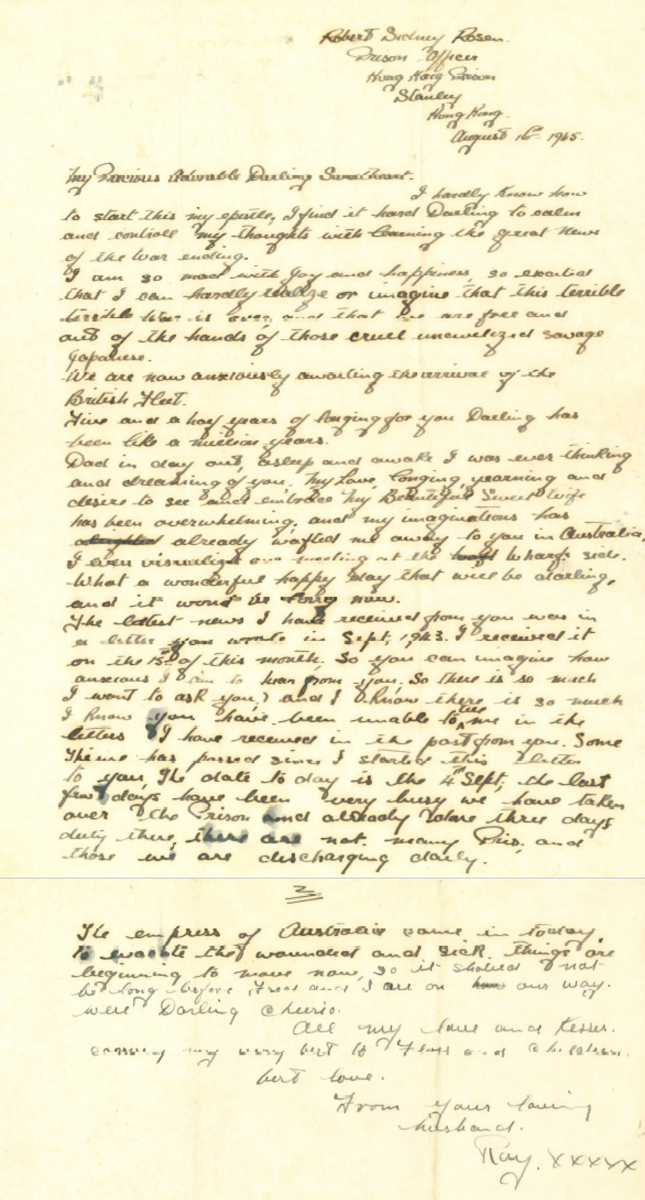 Robert Sidney Rosen.
Prison Officer
Hong Kong Prison
Stanley
Hong Kong.
August 16th 1945.
My Precious Adorable Darling Sweetheart.
I hardly know how
to start this my epistle, I find it hard Darling to calm
and controll my thoughts with learning the great news
of the War ending.
I am so mad with joy and happiness, so excited
that I can hardly realize or imagine that this terrible
terrible War is over, and that we are free and
out of the hands of those cruel uncivilized savage
Japanese.
We are now anxiously awaiting the arrival of the
British Fleet.
Five and a half years of longing for you Darling has
been like a million years.
Dad in day out, asleep and awake I was ever thinking
and dreaming of you, My Love, longing, yearning and
desire to see and embrace My Beautiful Sweet Wife
has been overwhelming, and my imaginations has
already wafted me away to you in Australia,
I even visualize our meeting at the Wharf side.
What a wonderful happy day that will be darling,
and it wont be long now.
The latest news I have received from you was in
a letter you wrote in Sept, 1943. I received it
on the 15th of this month. So you can imagine how
anxious I am to hear from you, So there is so much
I want to ask you, and I know there is so much
I know you have been unable to tell me in the
letters I have received in the past from you. Some
Time has passed since I started this letter
to you, The date to day is the 4th Sept, the last
few days have been very busy we have taken
over the Prison and already done three days
duty there, there are not many Pris, and
those we are discharging daily.
2
The empress of Australia came in today,
to evacute the wounded and sick. things are
beginning to move now, so it should not
be long before Fred and I are on our way.
were Darling cherio.
All my love and Kisses.
my very best to Floss and Children.
best love.
From your loving
husband.
Ray. xxxxx